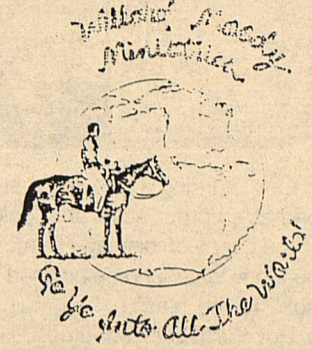 Willard Moody
Ministries
Go Ye Into All The World